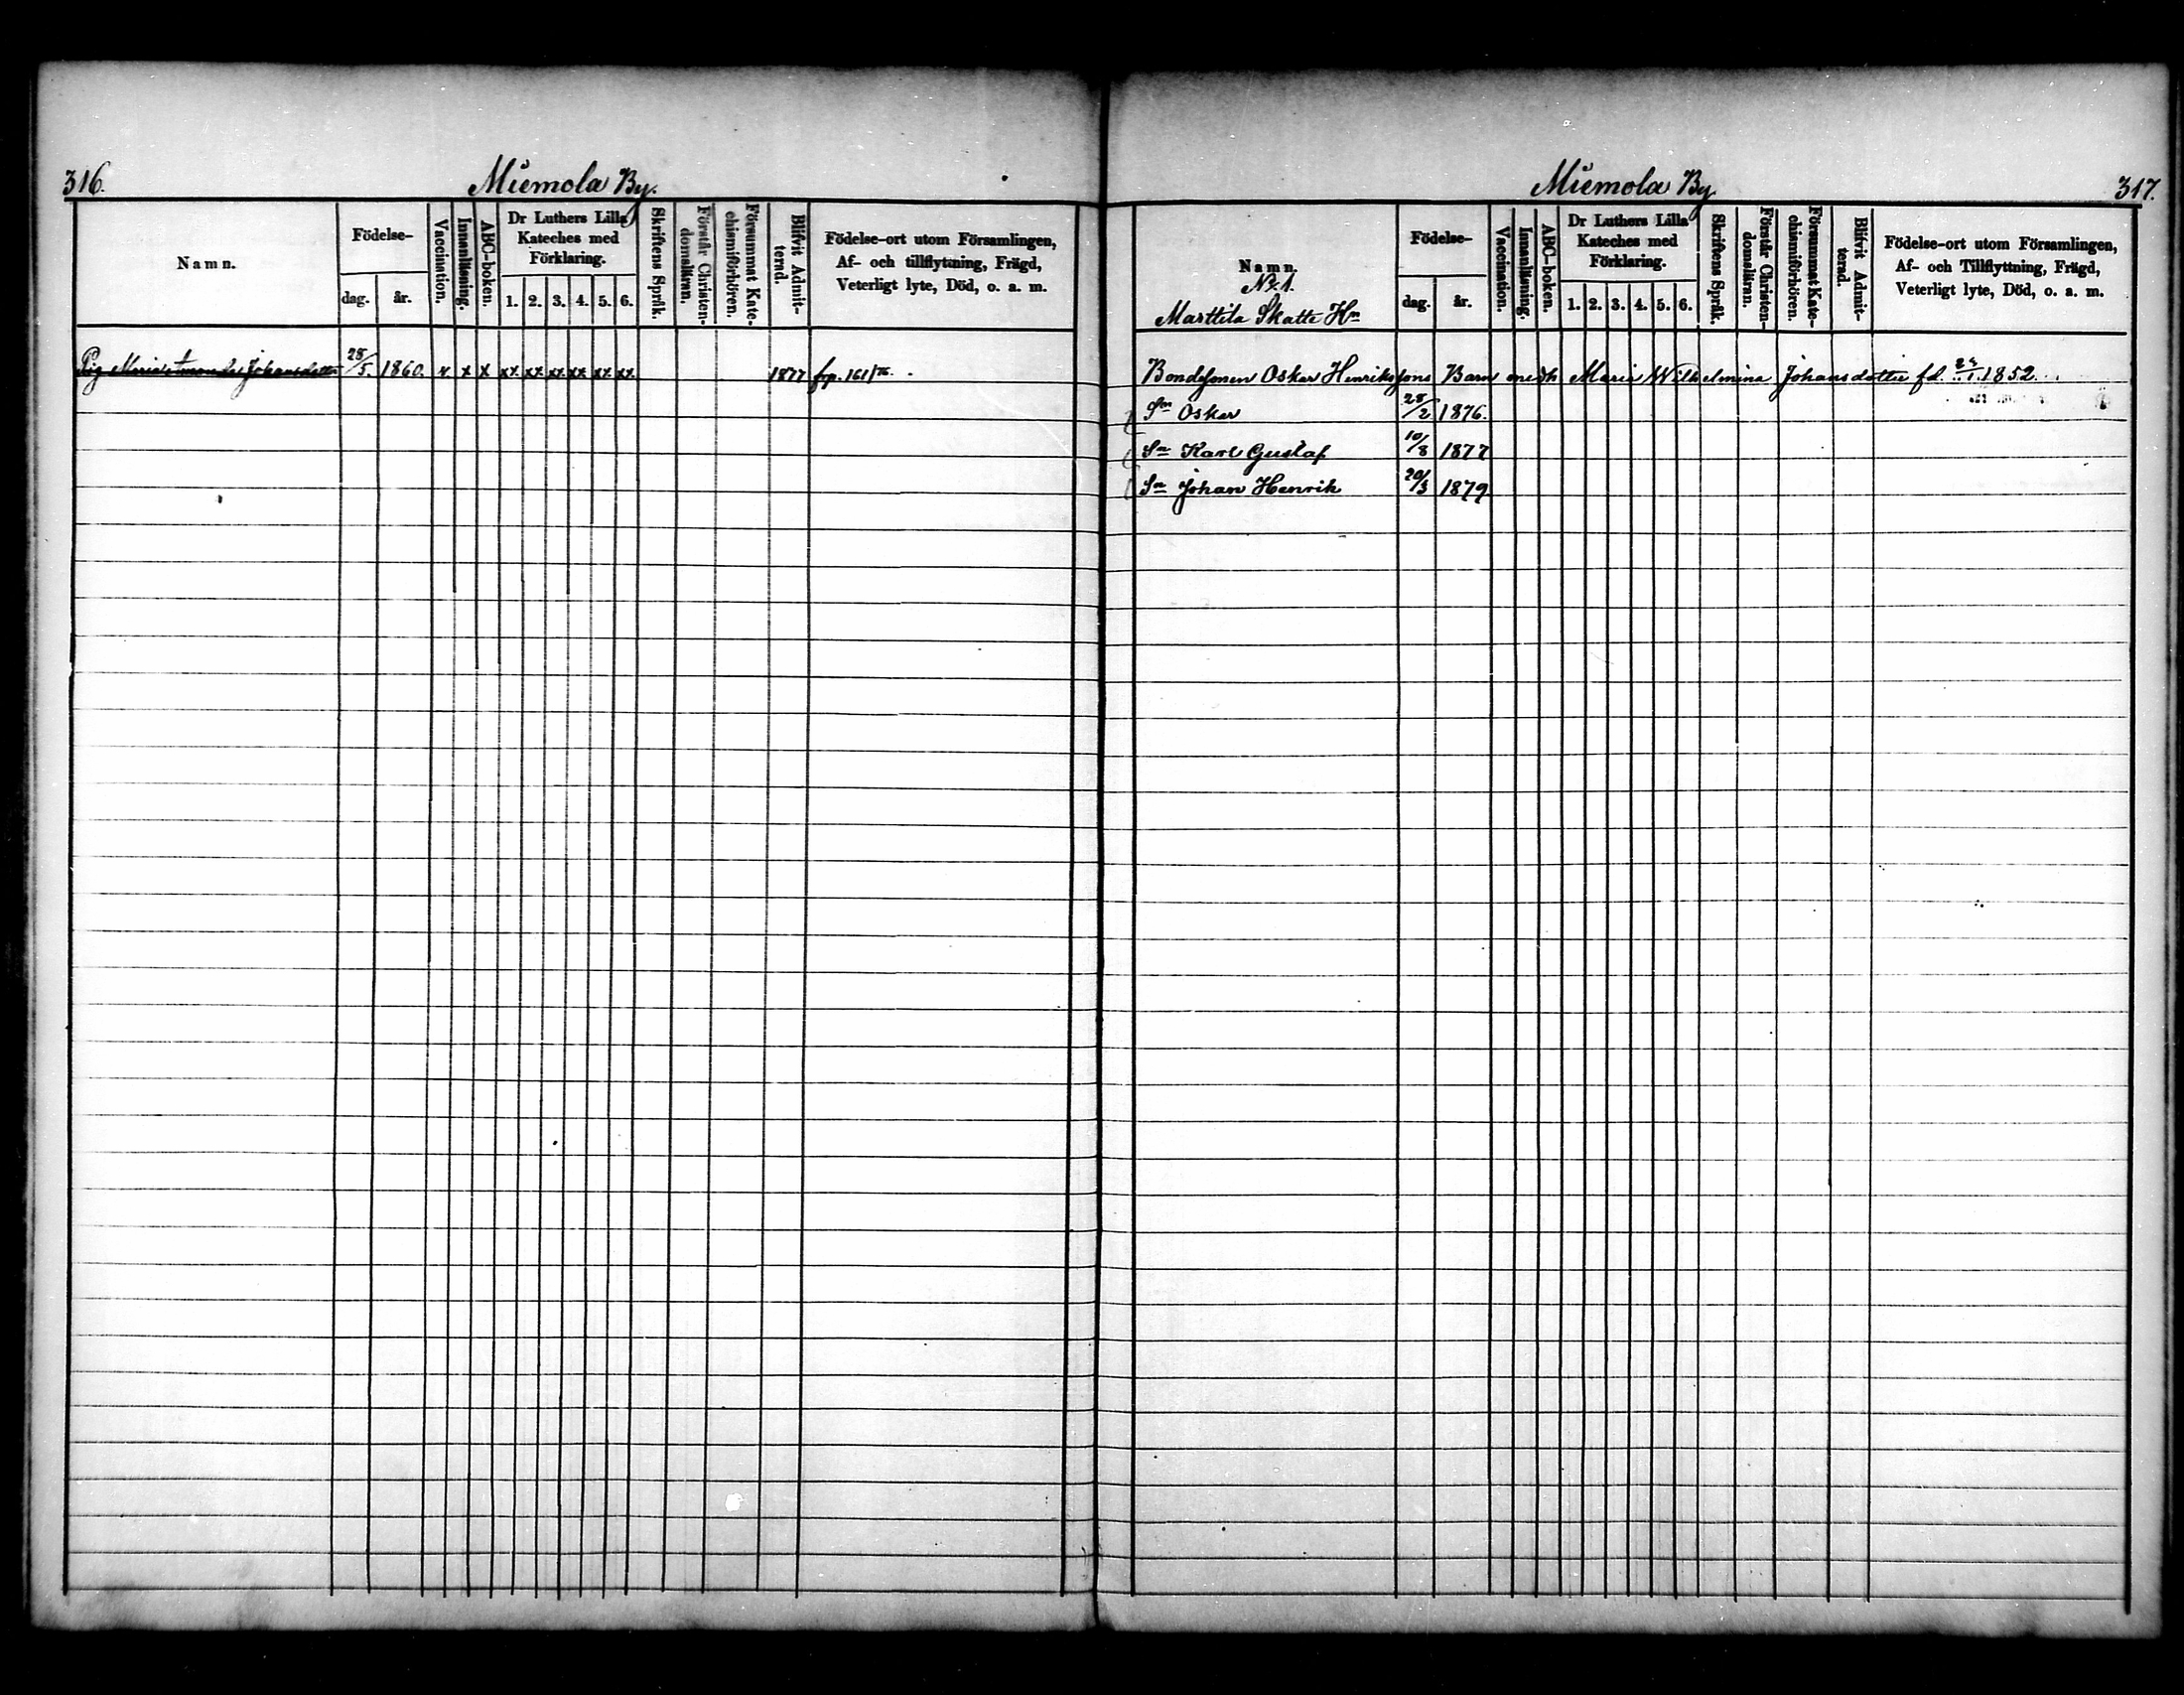 316.
Miemola By.
Namn.
Födelse-
dag.
år.
Vaccination.
Innanläsning.
ABC-boken.
Dr Luthers Lilla
Kateches med
Förklaring.
1. 2. 3. 4. 5. 6.
Skriftens Språk.
Förstår Christen-
domsläran.
Försummat Kate-
chismiförhören.
Blifvit Admit-
terad.
Födelse-ort utom Församlingen,
Af- och tillflyttning, Frägd,
Veterligt lyte, Död, o. a. m.
Pig Maria Johansdotter 28/5. 1860. x x x xx xx xx xx xx xx 1877 fr p. 161
Miemola By
317.
Namn.
No 1.
Marttila Skatte Hn
Födelse-
dag.
år.
Vaccination.
Innanläsning.
ABC-boken.
Dr Luthers Lilla
Kateches med
Förklaring.
1. 2. 3. 4. 5. 6.
Skriftens Språk.
Förstår Christen-
domsläran.
Försummat Kate-
chismiförhören.
Blifvit Admit-
terad.
Födelse-ort utom Församlingen,
Af- och Tillflyttning, Frägd,
Veterligt lyte, Död, o. a. m.
Bondesonen Oskar Henrikssons Barn med h Maria Wilhelmina Johansdotter fd. 1852.
Sn Oskar 28/2 1876.
Sn Karl Gustaf 10/8 1877
Sn Johan Henrik 20/3 1879